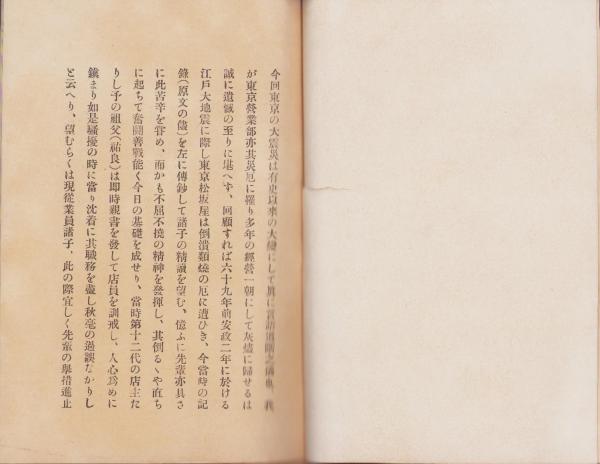 今回東京の大震災は有史以來の大變にして眞に言語道斷之儀也、我
が東京營業部亦其災厄に罹り多年の經營一朝にして灰燼に歸せるは
誠に遺憾の至りに堪へず、回顧すれば六十九年前安政二年に於ける
江戸大地震に際し東京松坂屋は倒潰類燒の厄に遭ひき、今當時の記
錄(原文の儘)を左に傳鈔して諸子の精讀を望む、憶ふに先輩亦具さ
に此苦辛を甞め、而かも不屈不撓の精神を發揮し、其倒るゝや直ち
に起ちて奮鬪善戰能く今日の基礎を成せり、當時第十二代の店主た
りし予の祖父(祐良)は即時親書を發して店員を訓戒し、人心爲めに
鎭まり如是騷擾の時に當り沈着に其職務を盡し秋毫の過誤なかりし
と云へり、望むらくは現從業員諸子、此の際宜しく先輩の擧措進止